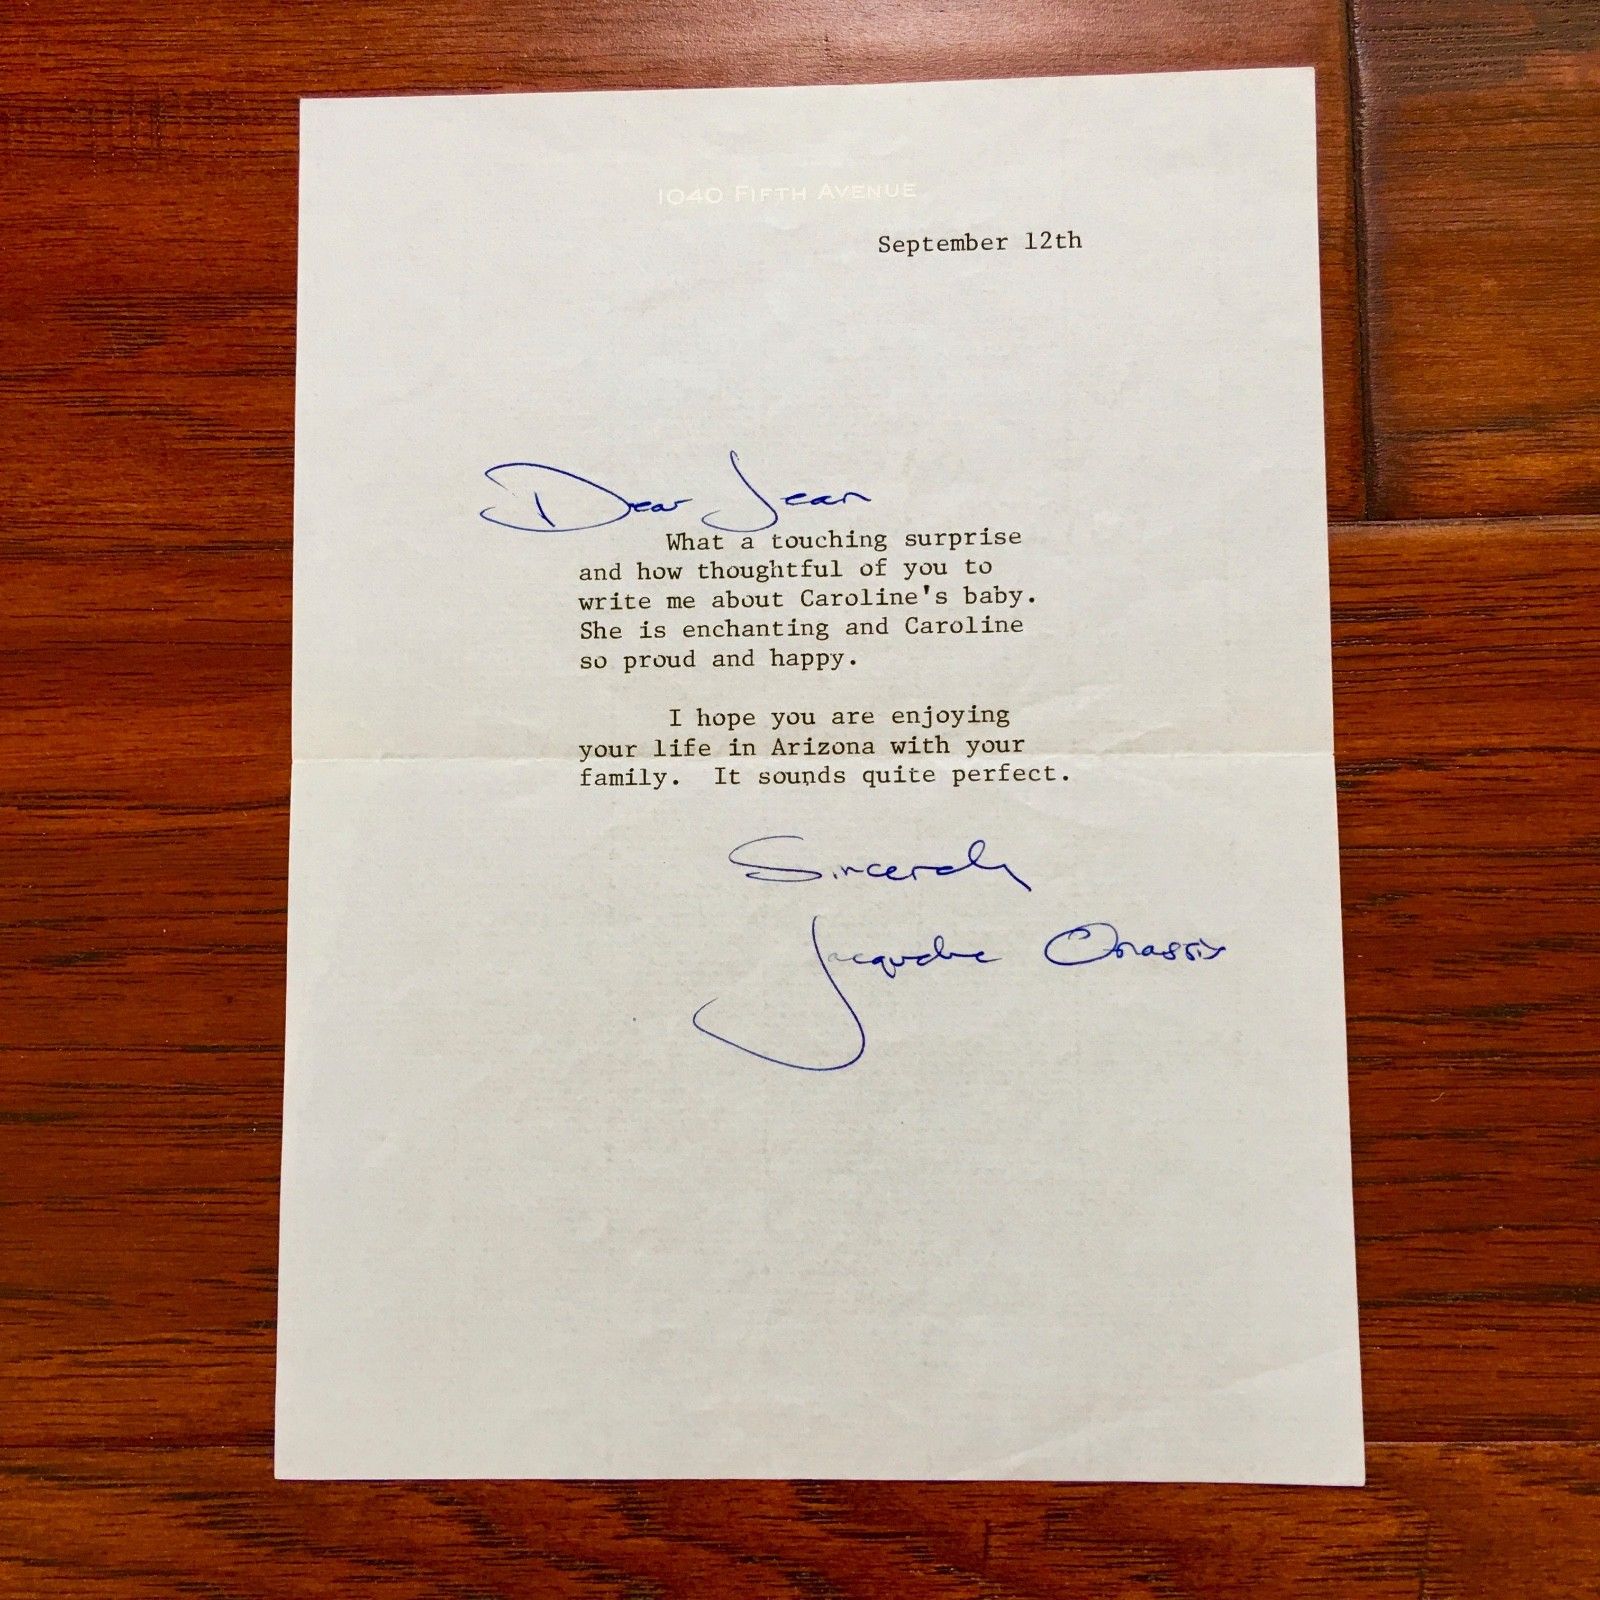 1040 FIFTH AVENUE
September 12th
Dear Jean
What a touching surprise
and how thoughtful of you to
write me about Caroline's baby.
She is enchanting and Caroline
so proud and happy.
I hope you are enjoying
your life in Arizona with your
family.  It sounds quite perfect.
Sincerely
Jacqueline Onassis